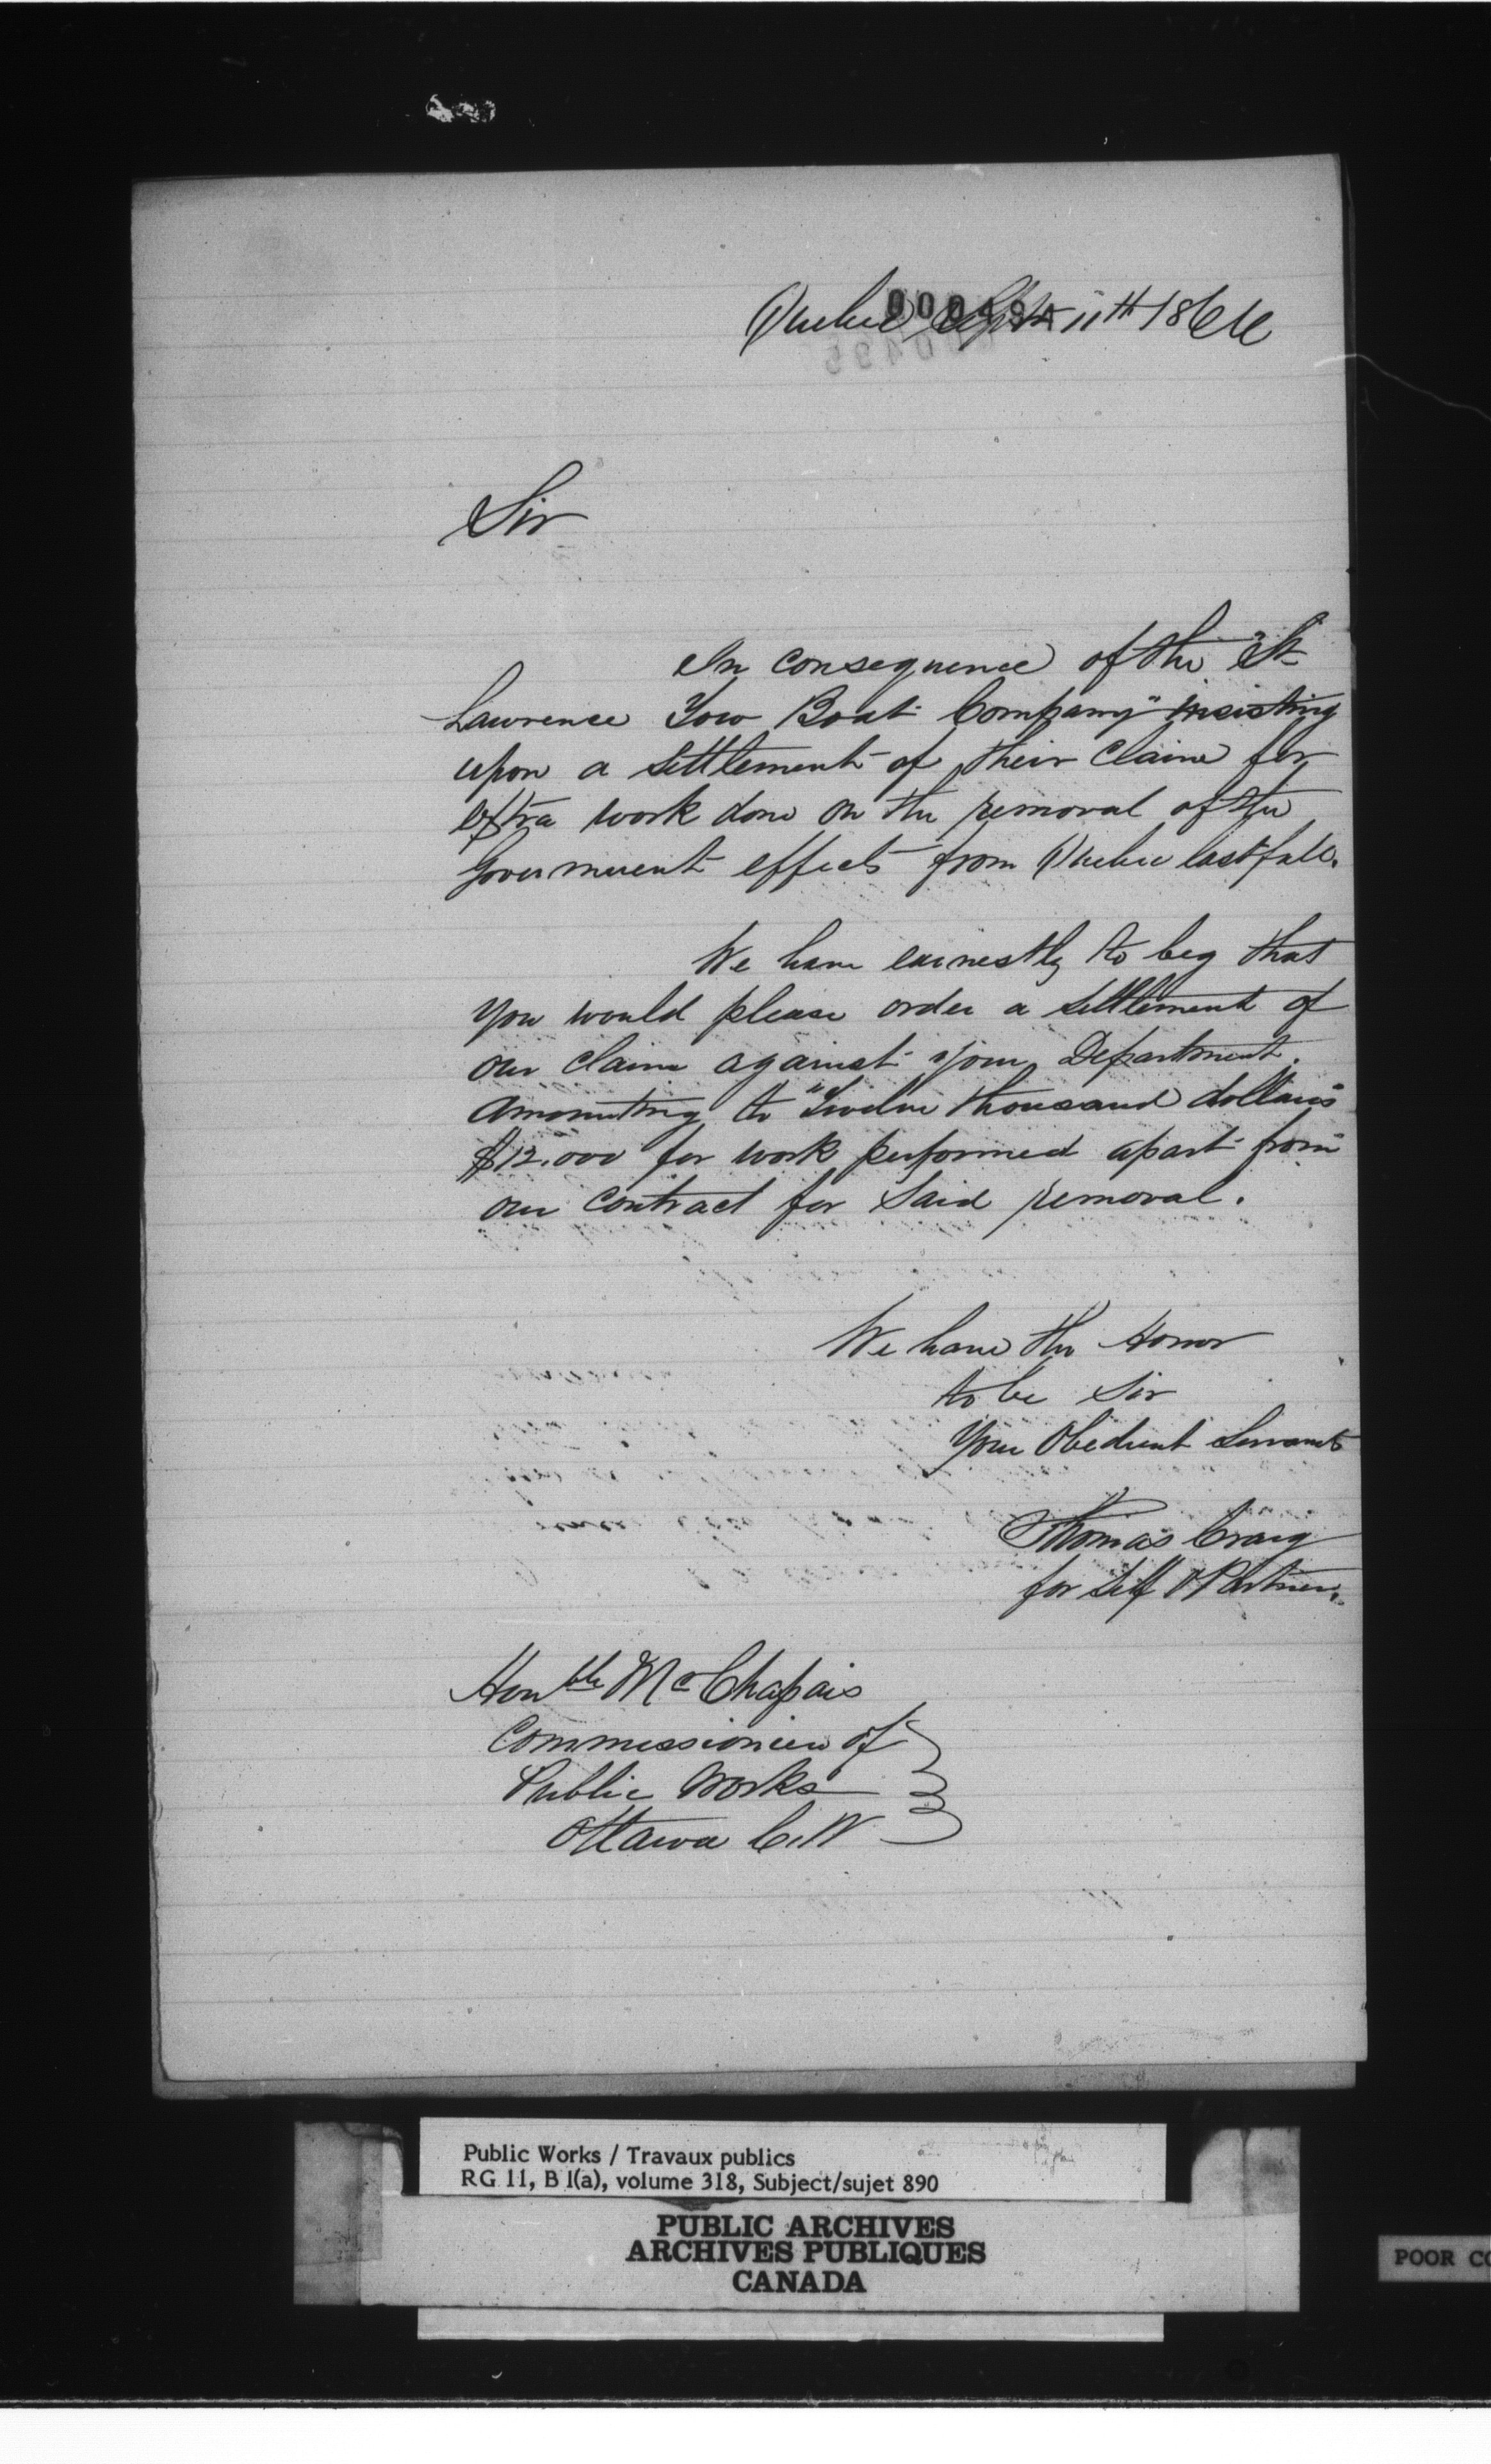 Quebec Sept 11th 1866
000494
Sir
In consequence of the "St
Lawrence Tow Boat Company" insisting
upon a settlement of their claim for
extra work done on the removal of the
Government effects from Quebec last fall.
We have earnestly to beg that
you would please order a settlement of
our claim against your Department.
amounting to "Twelve thousand dollars"
$12.000 for work performed apart from
our contract for said removal.
We have the Honor
to be Sir
Your Obedient Servants
Thomas Craig
for self & Partner.
Honble Mr Chapais
Commissioner of
Public Works
Ottawa C.W
Public Works / Travaux publics
RG 11, B 1(a), volume 318, Subject/sujet 890
PUBLIC ARCHIVES
ARCHIVES PUBLIQUES
CANADA
POOR CO